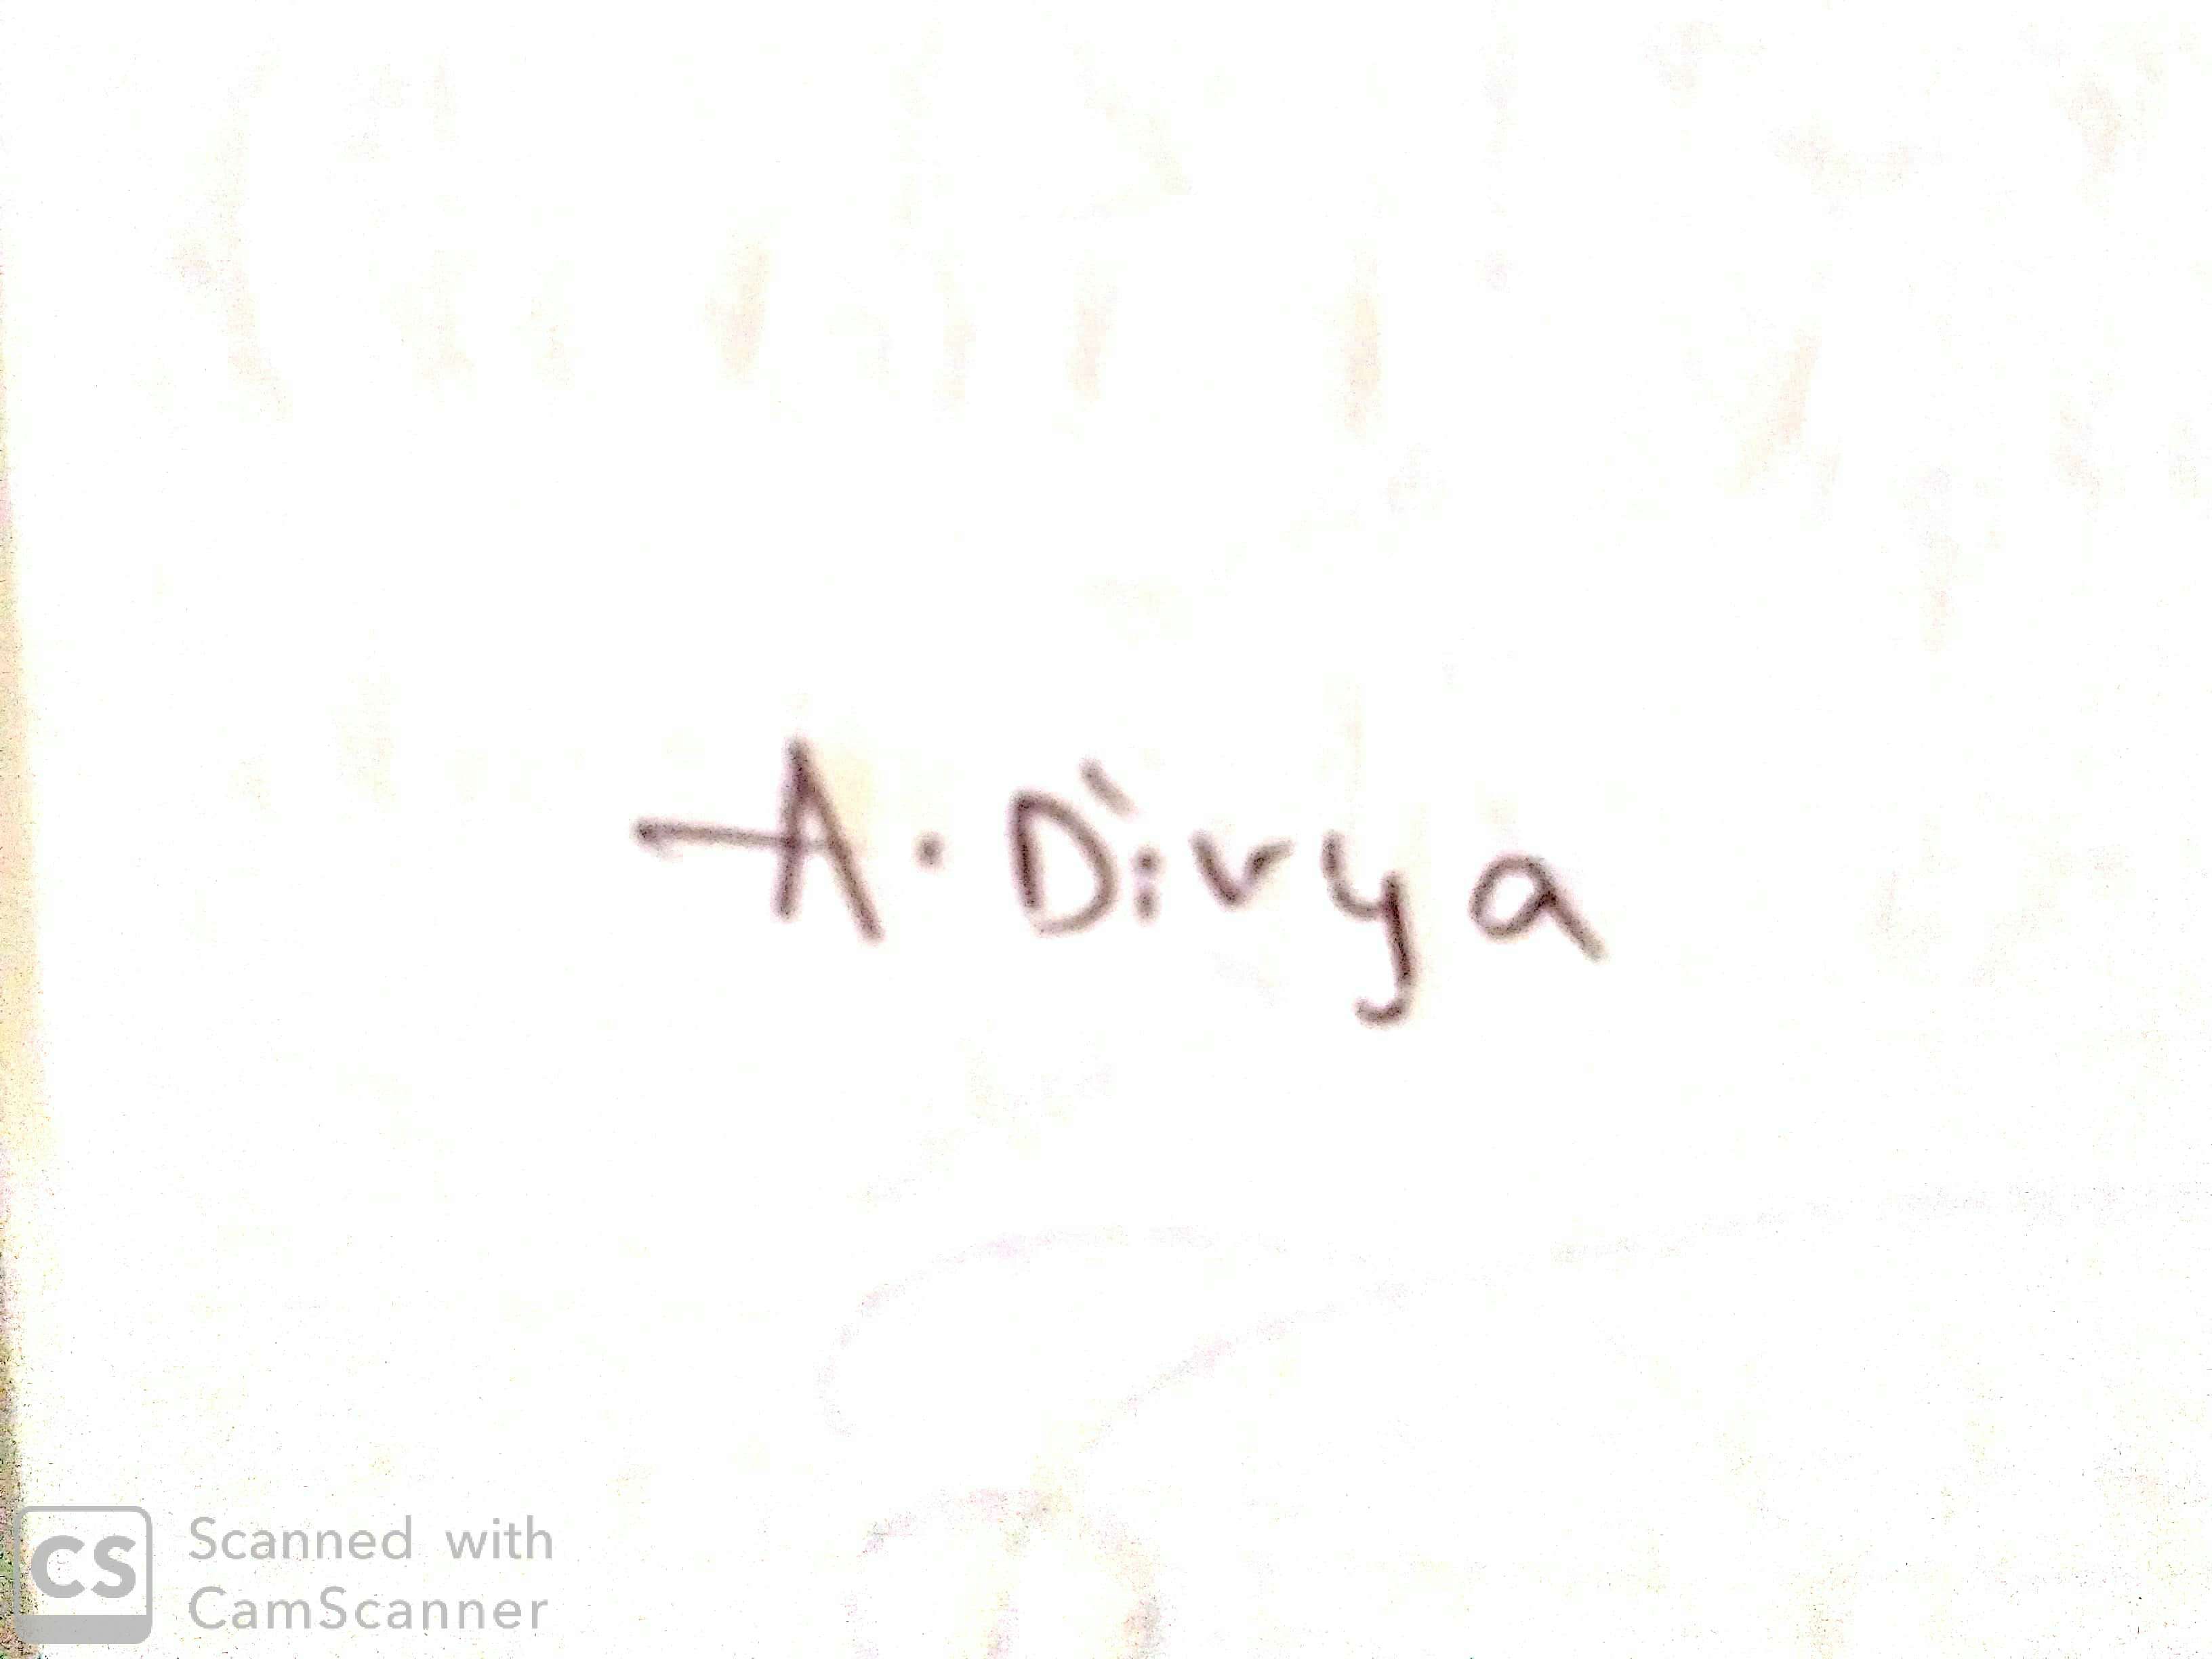 A. Divya
CS Scanned with
CamScanner